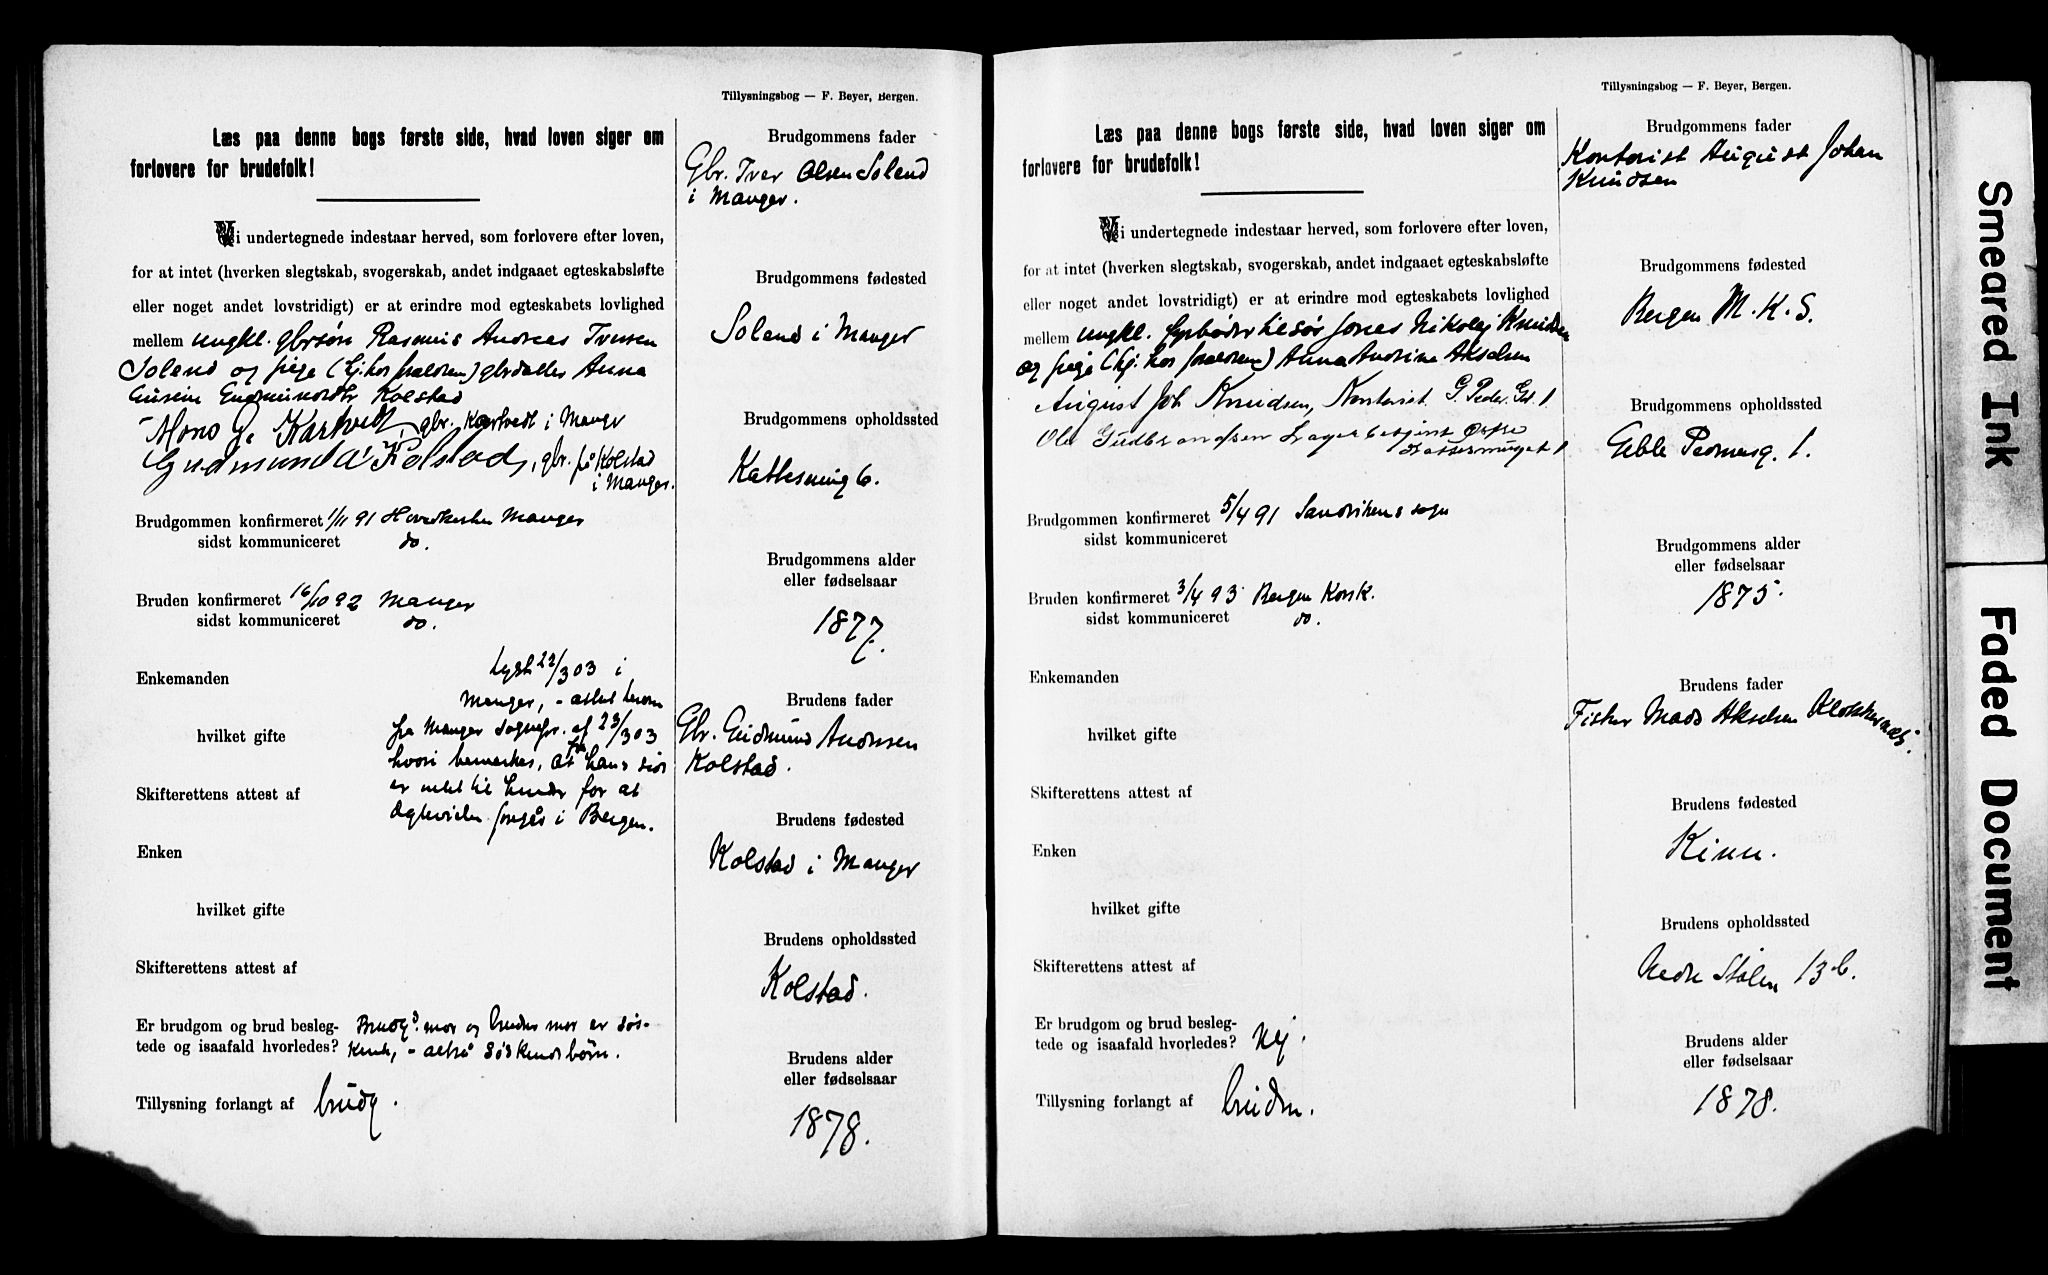 Tillysningsbog — F. Beyer, Bergen.
Læs paa denne bogs første side, hvad loven siger om
forlovere for brudefolk!
Vi undertegnede indestaar herved, som forlovere efter loven,
for at intet (hverken slegtskab, svogerskab, andet indgaaet egteskabsløfte
eller noget andet lovstridigt) er at erindre mod egteskabets lovlighed
mellem ungkl. gbrsøn Rasmus Andreas Iversen
Soland og pige (hj. hos forældren) gbrdatter Anna
Gurine Gudmundsdtr Kolstad
Mons G. Kartveit, gbr. Kartvedt i Manger
Gudmund A Kolstad, gbr. på Kolstad
i Manger.
Brudgommen konfirmeret 1/11 91 Hovedkirken Manger
sidst kommuniceret do.
Bruden konfirmeret 16/10 92 Manger
sidst kommuniceret do.
Enkemanden
hvilket gifte
Skifterettens attest af
Enken
hvilket gifte
Skifterettens attest af
lyst 22/3 03 i
Manger, - attest herom
fra Manger sognepr. af 23/3 03
hvori bemerkes, at fra hans side
er intet til hinder for at
ægtevielsen foregås i Bergen.
Er brudgom og brud besleg-
tede og isaafald hvorledes? Brudg.s mor og brudens mor er søs-
kende, - altså søskendebørn.
Tillysning forlangt af brudg.
Brudgommens fader
Gbr. Iver Olsen Soland
i Manger.
Brudgommens fødested
Soland i Manger
Brudgommens opholdssted
Kattesmug 6.
Brudgommens alder
eller fødselsaar
1877.
Brudens fader
Gbr. Gudmund Andersen
Kolstad.
Brudens fødested
Kolstad i Manger
Brudens opholdssted
Kolstad.
Brudens alder
eller fødselsaar
1878.
Tillysningsbog — F. Beyer, Bergen.
Læs paa denne bogs første side, hvad loven siger om
forlovere for brudefolk!
Vi undertegnede indestaar herved, som forlovere efter loven,
for at intet (hverken slegtskab, svogerskab, andet indgaaet egteskabsløfte
eller noget andet lovstridigt) er at erindre mod egteskabets lovlighed
mellem ungkl. fyrbøder tilsøs Jonas Nikolaj Knudsen
og pige (hj. hos forældren) Anna Andrina Akselsen
August Joh Knudsen, Kontorist
Ole Gudbrandsen Lagerbetjent
Brudgommen konfirmeret 5/4 91 Sandvikens sogn
sidst kommuniceret
Bruden konfirmeret 3/4 93 Bergen Korsk.
sidst kommuniceret do.
Enkemanden
hvilket gifte
Skifterettens attest af
Enken
hvilket gifte
Skifterettens attest af
Er brudgom og brud besleg-
tede og isaafald hvorledes? Nej.
Tillysning forlangt af bruden.
Brudgommens fader
Kontorist August Johan
Knudsen
Brudgommens fødested
Bergen M. K. S.
Brudgommens opholdssted
Gble Pedersg. 1.
Brudgommens alder
eller fødselsaar
1875.
Brudens fader
Fisker Mads Akselsen Klokkernæs.
Brudens fødested
Kinn.
Brudens opholdssted
Nedre Stølen 13 b.
Brudens alder
eller fødselsaar
1878.
Smeared Ink
Faded Document